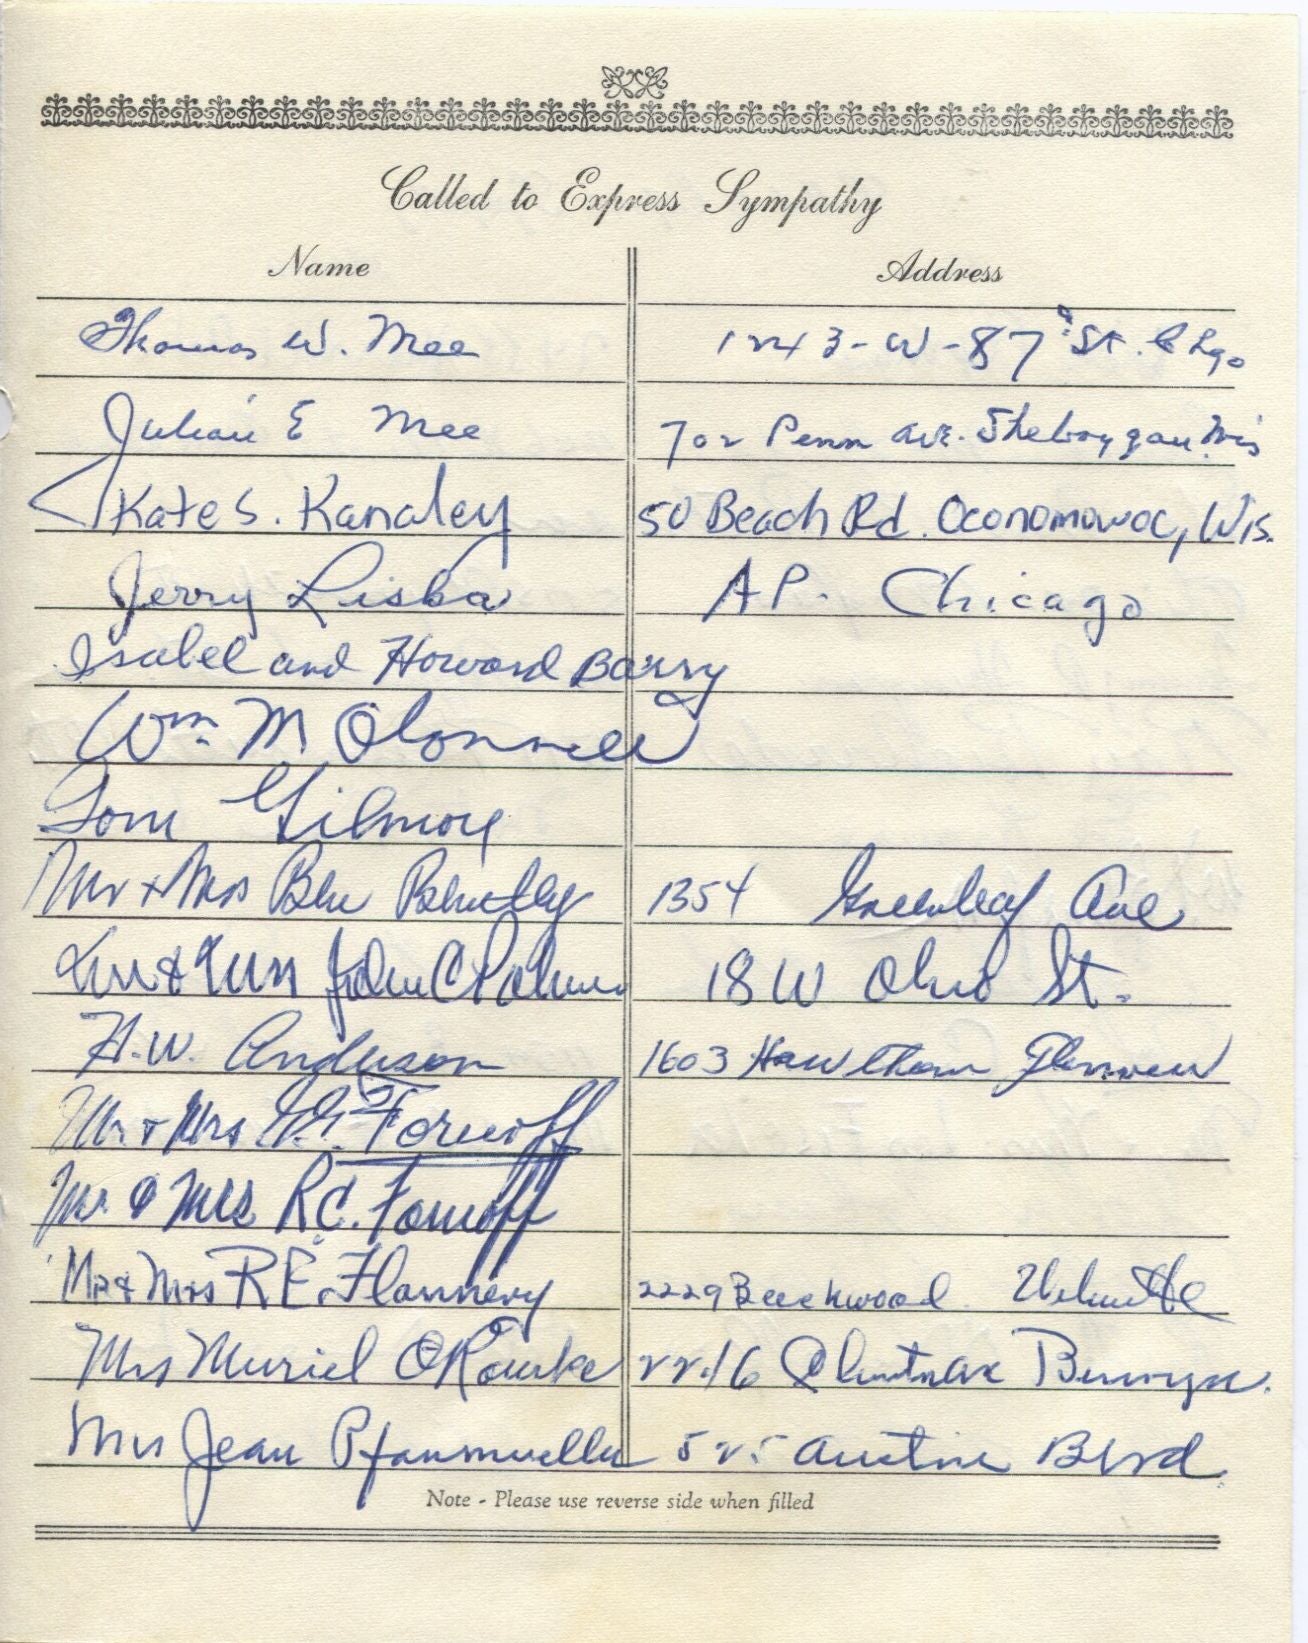 Called to Express Sympathy
Name Address
Thomas W. Mee 1243-W-87th St. Chgo
Julian E Mee 702 Penn Ave. Sheboygan Wis
Kate S. Kanaley 50 Beach Rd. Oconomowoc, Wis.
Jerry Liska AP. Chicago
Isabel and Howard Barry
Wm. M Oconnell
Tom Gilmoy
Mr + Mrs 1354 Greenleaf Ave
John C Palmer 18 W Ohio St.
H.W. Anderson 1603 Hawthorn Glenview
Mr + Mrs Fornoff
Mr & Mrs R.C. Fornoff
Mr & Mrs R E. Flannery 2229 Beechwood Wilmette
Mrs Muriel O'Rourke 2216 Berwyn.
Mrs Jean Pfannmueller 525 Austin Blvd.
Note - Please use reverse side when filled